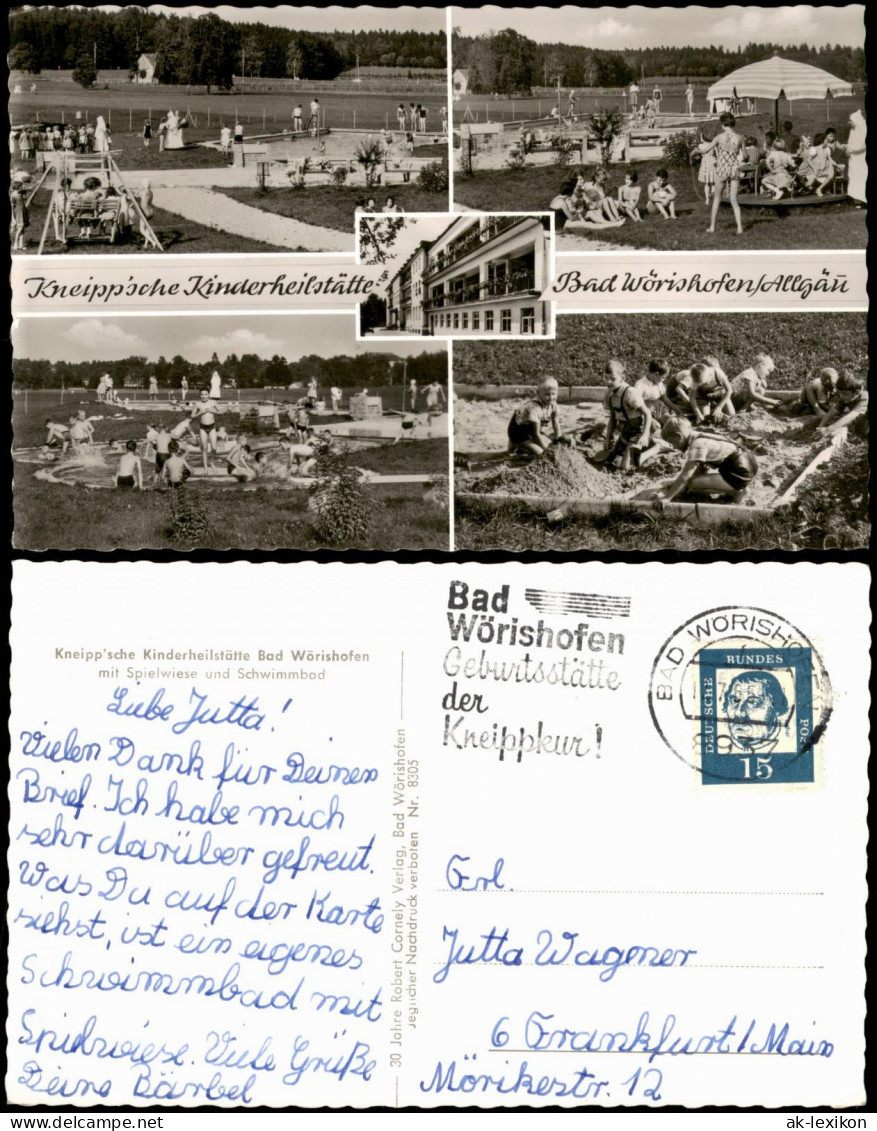 Kneipp'sche Kinderheilstätte
Bad Wörishofen/Allgäu
Kneipp'sche Kinderheilstätte Bad Wörishofen
mit Spielwiese und Schwimmbad
Liebe Jutta!
Vielen Dank für Deinen
Brief. Ich habe mich
sehr darüber gefreut.
Was Du auf der Karte
siehst, ist ein eigenes
Schwimmbad mit
Spielwiese. Viele Grüße
Deine Bärbel
30 Jahre Robert Cornely Verlag, Bad Wörishofen
Jeglicher Nachdruck verboten Nr. 8305
Bad
Wörishofen
Geburtsstätte
der
Kneippkur!
BAD WÖRISHOFEN
8939
DEUTSCHE
BUNDES
POST
15
Frl.
Jutta Wagener
6 Frankfurt/Main
Mörikestr. 12
ak-lexikon